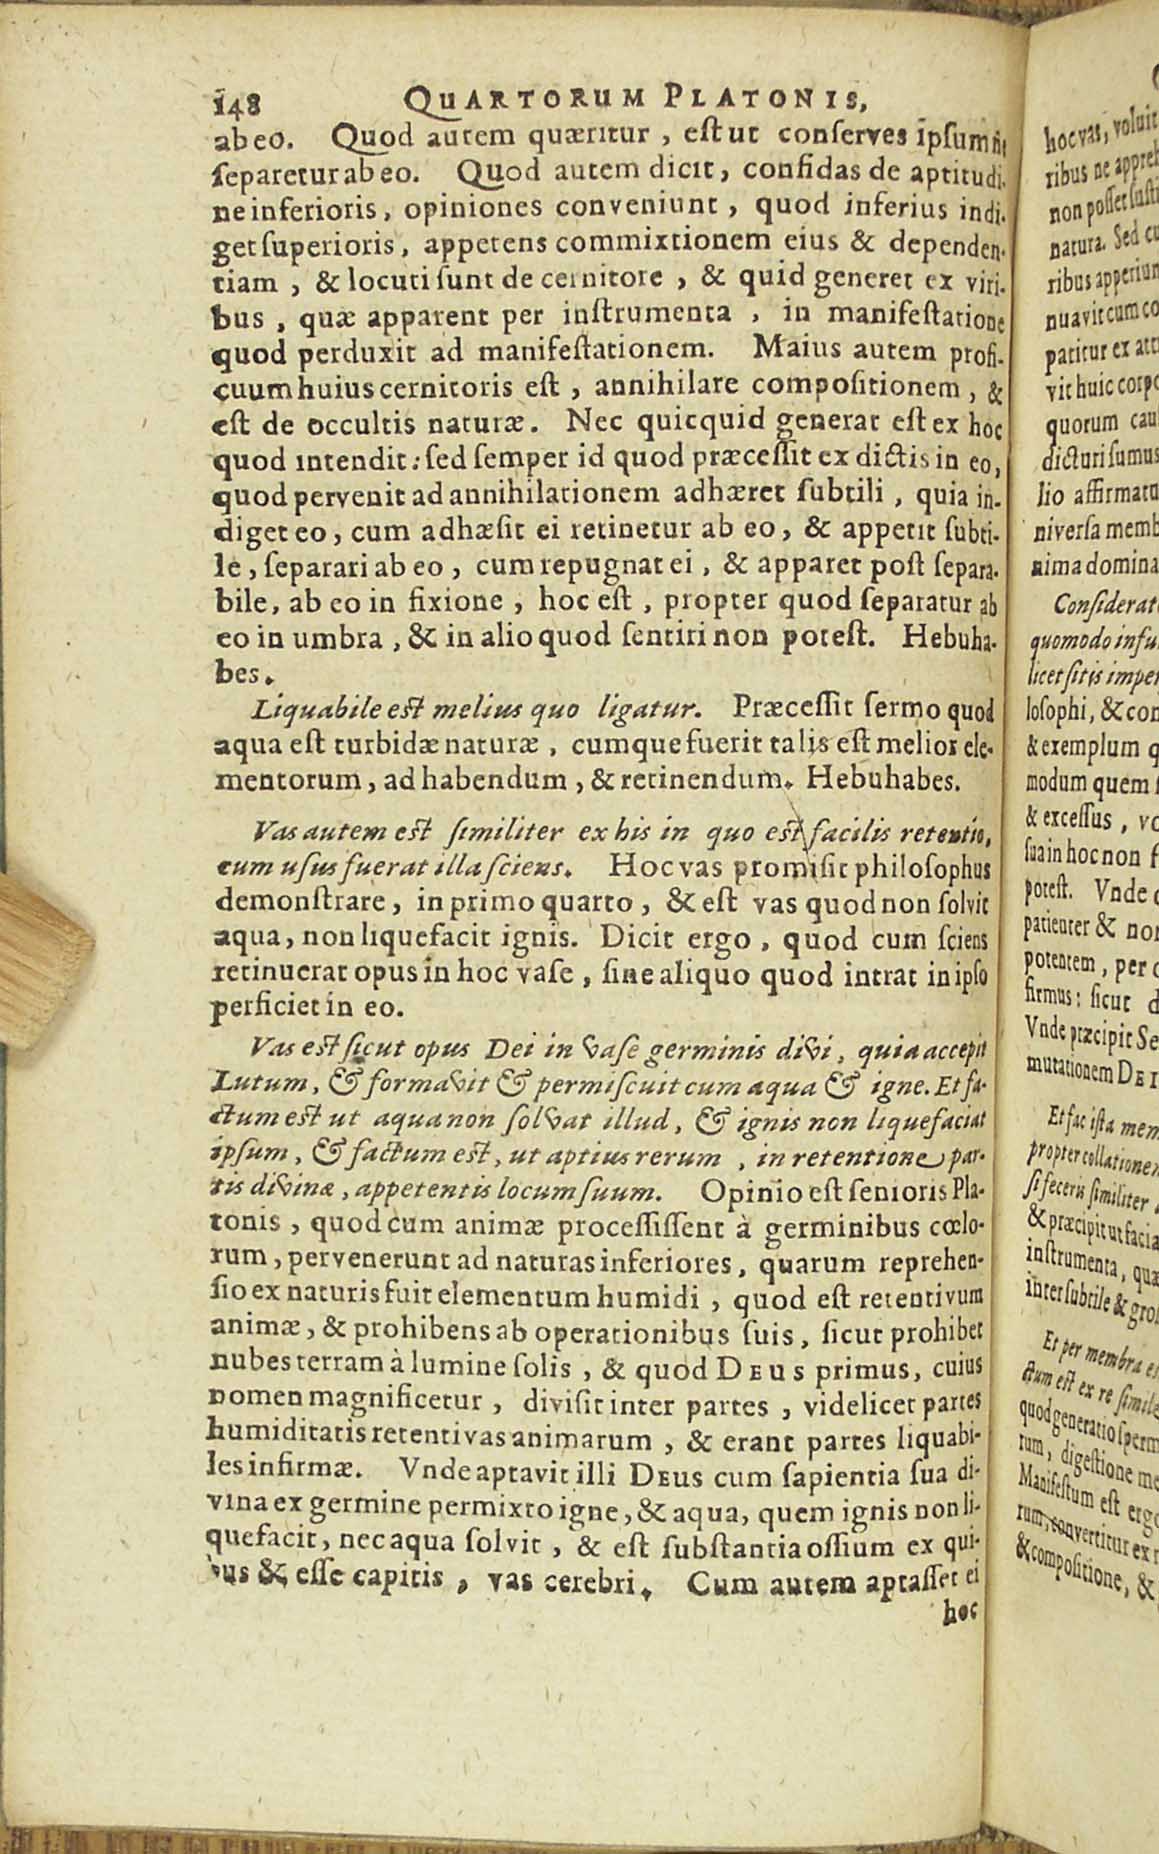 148 QUARTORUM PLATONIS,
ab eo. Quod autem quæritur, est ut conserves ipsum ne
separetur ab eo. Quod autem dicit, confidas de aptitudi-
ne inferioris, opiniones conveniunt, quod inferius indi-
get superioris, appetens commixtionem eius & dependen-
tiam, & locuti sunt de cernitore, & quid generet ex viri-
bus, quæ apparent per instrumenta, in manifestatione
quod perduxit ad manifestationem. Maius autem profi-
cuum huius cernitoris est, annihilare compositionem, &
est de occultis naturæ. Nec quicquid generat est ex hoc
quod intendit: sed semper id quod præcessit ex dictis in eo,
quod pervenit ad annihilationem adhæret subtili, quia in-
diget eo, cum adhæsit ei retinetur ab eo, & appetit subti-
le, separari ab eo, cum repugnat ei, & apparet post separa-
bile, ab eo in fixione, hoc est, propter quod separatur ab
eo in umbra, & in alio quod sentiri non potest. Hebuha-
bes.
Liquabile est melius quo ligatur. Præcessit sermo quod
aqua est turbidæ naturæ, cumque fuerit talis est melior ele-
mentorum, ad habendum, & retinendum. Hebuhabes.
Vas autem est similiter ex his in quo est facilis retentio,
cum usus fuerat illa sciens. Hoc vas promisit philosophus
demonstrare, in primo quarto, & est vas quod non solvit
aqua, non liquefacit ignis. Dicit ergo, quod cum sciens
retinuerat opus in hoc vase, sine aliquo quod intrat in ipso
perficiet in eo.
Vas est sicut opus Dei in vase germinis divi, quia accepit
Lutum, & formavit & permiscuit cum aqua & igne. Et fa-
ctum est ut aqua non solvat illud, & ignis non liquefaciat
ipsum, & factum est, ut aptius rerum, in retentione par-
tis divinæ, appetentis locum suum. Opinio est senioris Pla-
tonis, quod cum animæ processissent à germinibus cœlo-
rum, pervenerunt ad naturas inferiores, quarum reprehen-
sio ex naturis fuit elementum humidi, quod est retentivum
animæ, & prohibens ab operationibus suis, sicut prohibet
nubes terram à lumine solis, & quod DEUS primus, cuius
nomen magnificetur, divisit inter partes, videlicet partes
humiditatis retentivas animarum, & erant partes liquabi-
les infirmæ. Vnde aptavit illi DEUS cum sapientia sua di-
vina ex germine permixto igne, & aqua, quem ignis non li-
quefacit, nec aqua solvit, & est substantia ossium ex qui-
bus & esse capitis, vas cerebri. Cum autem aptasset ei
hoc
hoc vas, voluit
ribus ne appreh
non posset susti
natura. Sed cu
ribus apperiun
nuavit cum co
patitur ex att
vit huic corpo
quorum cau
dicturi sumus
lio affirmatu
niversa memb
nima domina
Considerat
quomodo infu
licet sitis imper
losophi, & con
& exemplum q
modum quem
& excessus, vo
sua in hoc non f
potest. Vnde
patienter & non
potentem, per
firmus: sicut d
Vnde præcipit Se
mutationem DEI
Et fac ista mem
propter collationem
si feceris similiter
& præcipit ut facia
instrumenta, quæ
inter subtile & gros
Et per membra
ctum est ex re simile
quod generatio sperm
rum, digestione me
Manifestum est ergo
rum, convertitur ex
& compositione, &